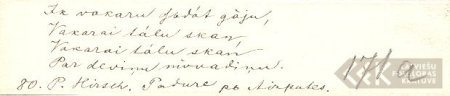 Ik vakaru gadāt gāju,
Vakarai tālu skan,
Vakarai tālu skan
Par deviņi novadiņu.
80. P. Hirsch, Padure pr Aizputes.
171,
LATVIEŠU
FOLKLORAS
KRĀTUVE